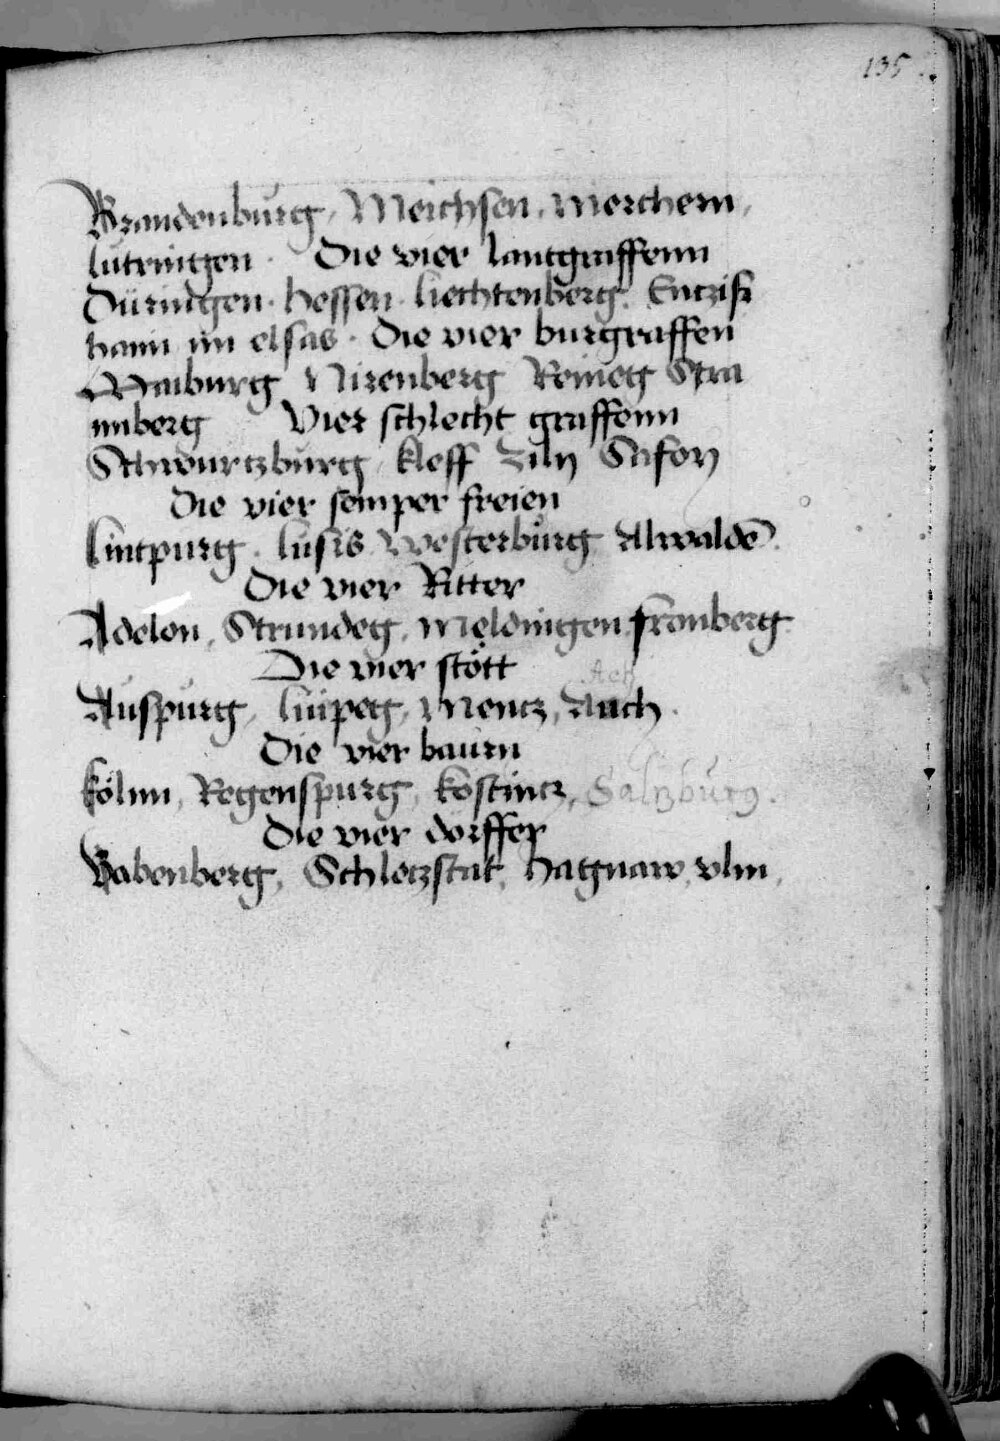 135
Brandenburg, Meichsen, Merchern,
lutringen. Die vier lantgraffenn
Düringen. Hessen. liechtenberg. Entziß
hann im elsas. Die vier burgraffen
Maiburg Nirenberg Reineg Stra
nnberg Vier schlecht graffenn
Schwurtzburg, kleff Zily Safoy
Die vier semper freien
Lintpurg. lusis Westerburg Alwaldē.
Die vier Ritter
Adelon, Strundeg, Meldingen, fronberg.
Die vier stött
Ach
Auspurg, lüipeg, Mentz, Auch.
Die vier baurn
kölnn, Regenspurg, kostintz, Saltzburg.
Die vier dörffer
Babenberg, Schletzstat, Hagnaw, vlm,